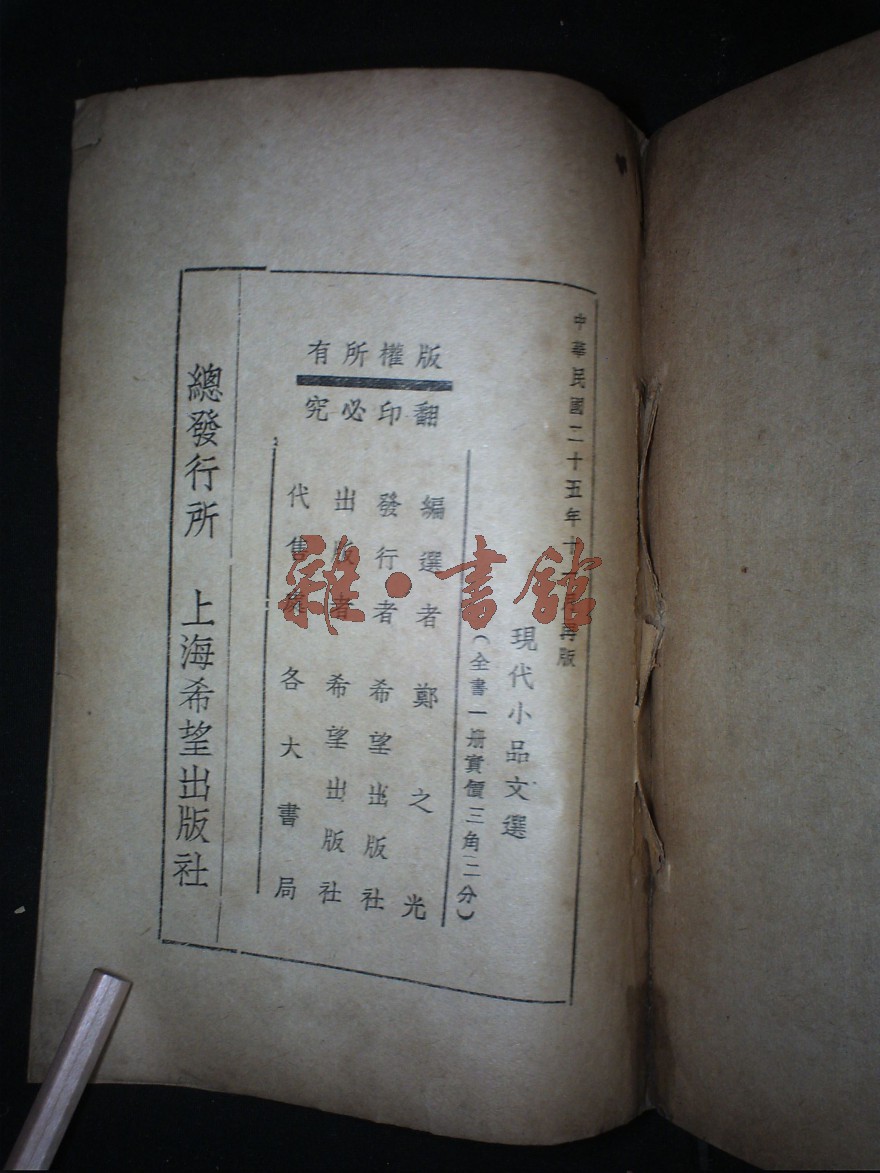 中華民國二十五年十 再版
現代小品文選
(全書一册實價三角二分)
版權所有
翻印必究
編選者 鄭之光
發行者 希望出版社
出版者 希望出版社
代售處 各大書局
總發行所 上海希望出版社
雜·書館